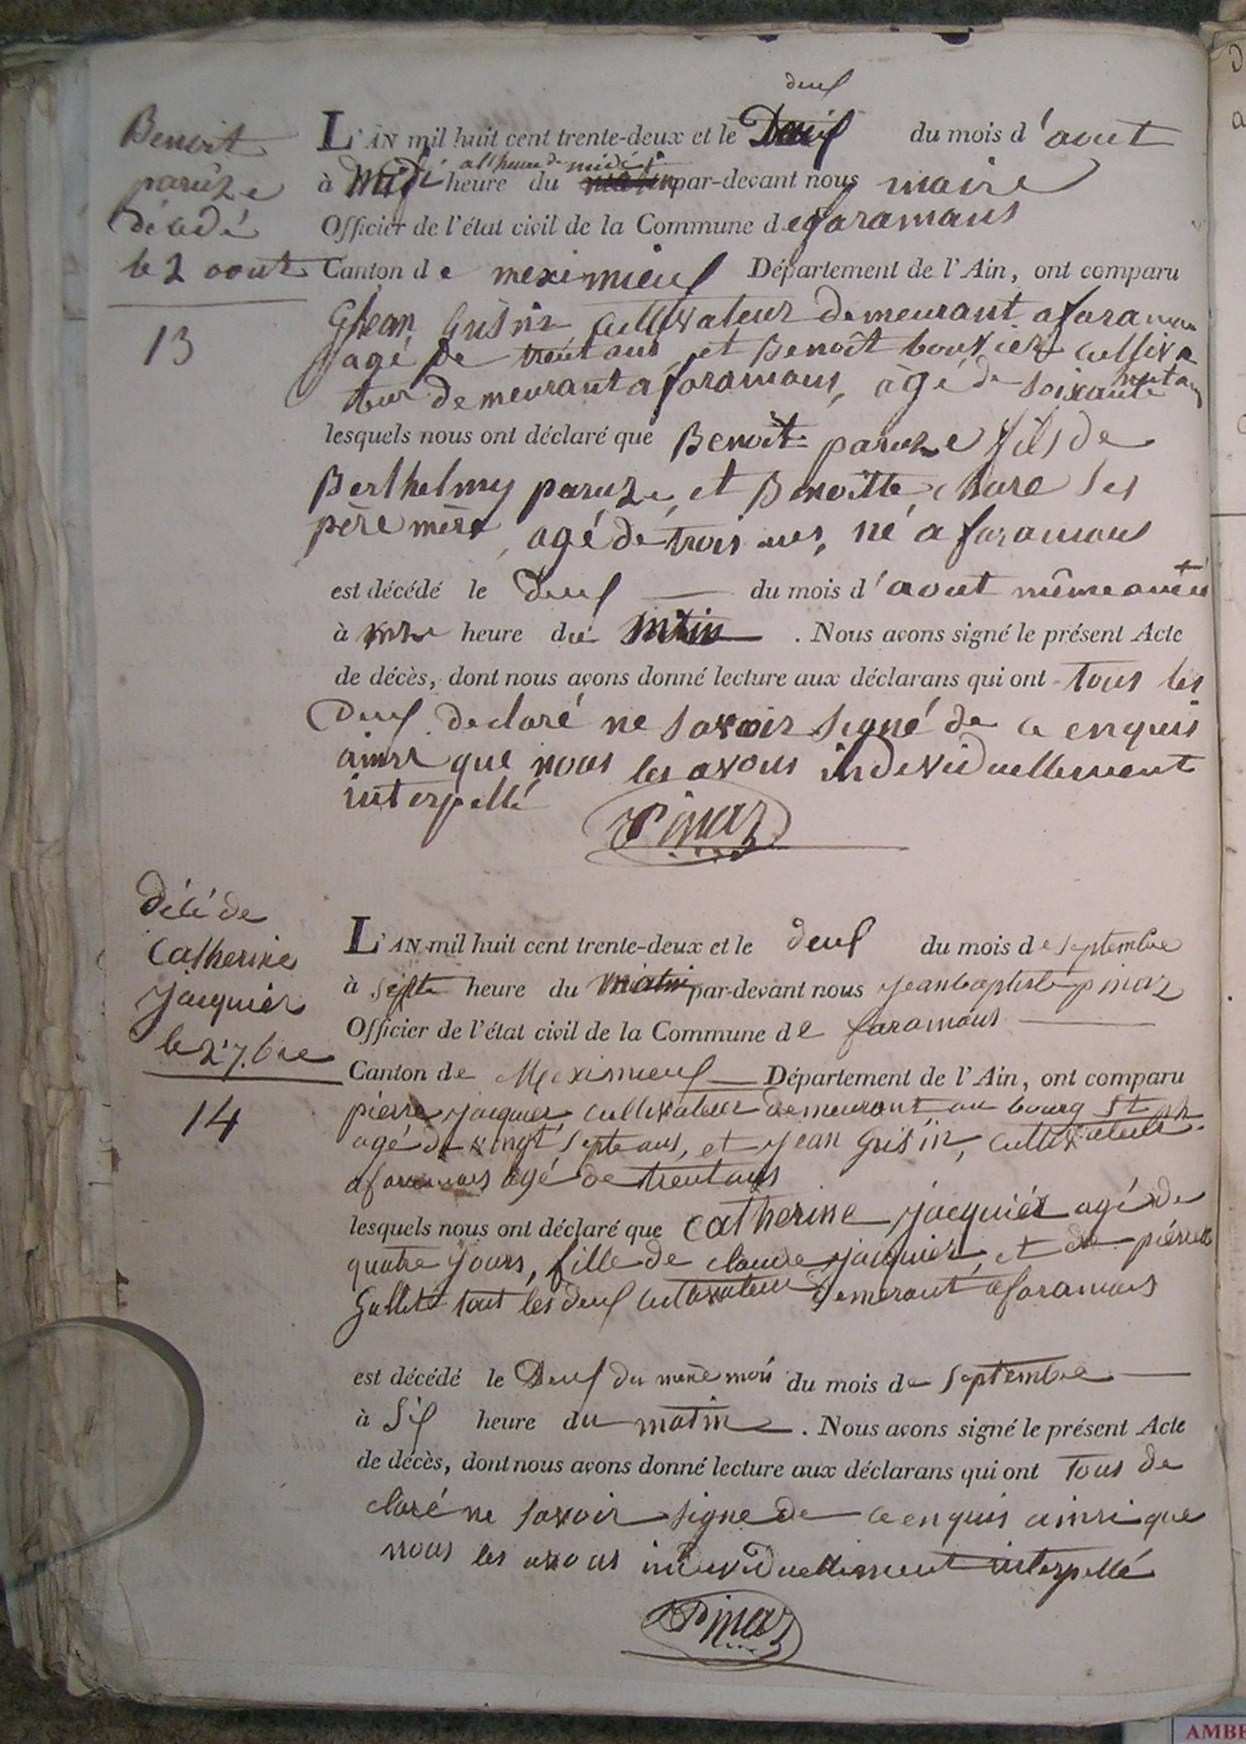 Benoit
paruze
décédé
le 2 aout
13
deux
L'AN mil huit cent trente-deux et le Deux du mois d'aout
a lheure de midi
à midi heure du matin par-devant nous maire
Officier de l'état civil de la Commune de faramans
Canton de meximieux Département de l'Ain, ont comparu
Jean Guisin cultivateur demeurant a faramans
agé de trent ans et Benoit bouvier cultiva
teur demeurant a faramans, agé de soixante huit ans
lesquels nous ont déclaré que Benoit paruze fils de
Berthelmy paruze, et Benoitte chare ses
père mère, agé de trois ans, né a faramans
est décédé le deux du mois d'aout même année
à heure du matin. Nous avons signé le présent Acte
de décès, dont nous avons donné lecture aux déclarans qui ont tous les
Deux declaré ne savoir signé de ce enquis
ainsi que nous les avons individuellement
interpellé
Pinaz
Décé de
Catherine
Jacquier
le 2 7.bre
14
L'AN mil huit cent trente-deux et le deux du mois de septembre
à septe heure du matin par-devant nous jean baptiste pinaz
Officier de l'état civil de la Commune de faramans
Canton de Meximieux Département de l'Ain, ont comparu
pierre jacquier cultivateur demeurant au bourg St
agé de vingt septe ans, et jean Guisin, cultivateur
a faramans agé de trent ans
lesquels nous ont déclaré que Catherine jacquier agé de
quatre jours, fille de claude jacquier, et de pierrette
Gullit tout les deux cultivateur demerant a faramans
est décédé le Deux du même mois du mois de septembre
à six heure du matin. Nous avons signé le présent Acte
de décès, dont nous avons donné lecture aux déclarans qui ont tous de
claré ne savoir signe de ce enquis ainsi que
nous les avons individuellement interpellé
Pinaz